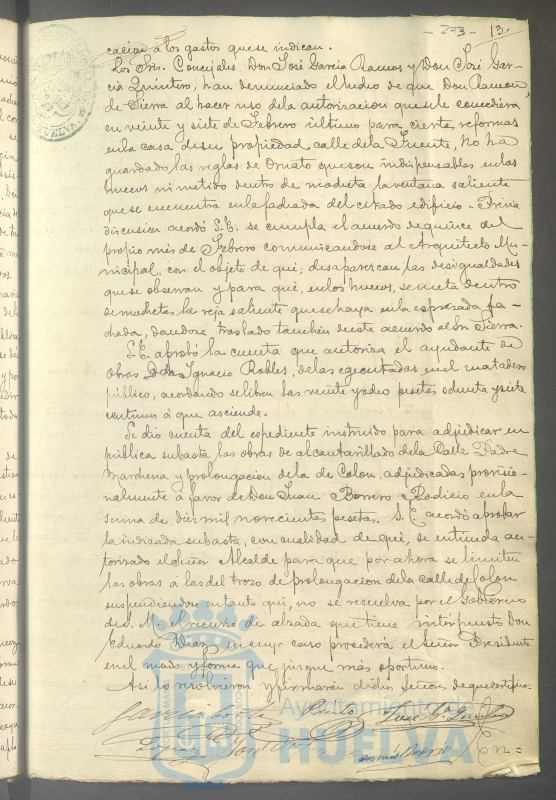 - 273 - 13.
cación á los gastos que se indican.
Los Sres. Concejales, Don José Garcia Ramos y Don José Gar-
cia Quintero, han denunciado el hecho de que Don Ramon
de Sierra al hacer uso de la autorizacion que se le concediera
en veinte y siete de Febrero último para ciertas reformas
en la casa de su propiedad calle de la Fuente, no ha
guardado las reglas de Ornato que son indispensables en los
huecos ni metido dentro de mocheta la ventana saliente
que se encuentra en la fachada del citado edificio. Prévia
discusion acordó S.E. se cumpla el acuerdo de quince del
propio mes de Febrero comunicandose al Arquitecto Mu-
nicipal, con el objeto de que, desaparezcan las desigualdades
que se observan y para que, en los huecos, se meta dentro
de mochetas la reja saliente que se haya en la expresada fa-
chada, dandose traslado tambien de este acuerdo al Sr. Sierra.
S.E. aprobó la cuenta que autoriza el ayudante de
obras D. Ignacio Robles, de las egecutadas en el matadero
público, acordando se libren las veinte y ocho pesetas ochenta y siete
centimos á que asciende.
Se dio cuenta del expediente instruido para adjudicar en
pública subasta las obras de alcantarillado de la Calle Padre
Marchena y prolongacion de la de Colon, adjudicadas provicio-
nalmente á favor de Don Juan Borrero Rodicio en la
suma de diez mil novecientas pesetas. S.E. acordó aprobar
la indicada subasta, con cualidad de que, se entienda au-
torizado el Señor Alcalde para que por ahora se limiten
las obras á las del trozo de prolongacion de la calle de Colon
suspendiendose en tanto que, no se resuelva por el Gobierno
de S. M. el recurso de alzada que tiene interpuesto Don
Eduardo Diaz, en cuyo caso procederá el Señor Presidente
en el modo y forma que juzgue más oportuno.
Asi lo resolvieron y firmarán dichos Señores de que certifico.
Garcia
Pinto
José
Lopez
En=
Ayuntamiento de
HUELVA
HUELVA